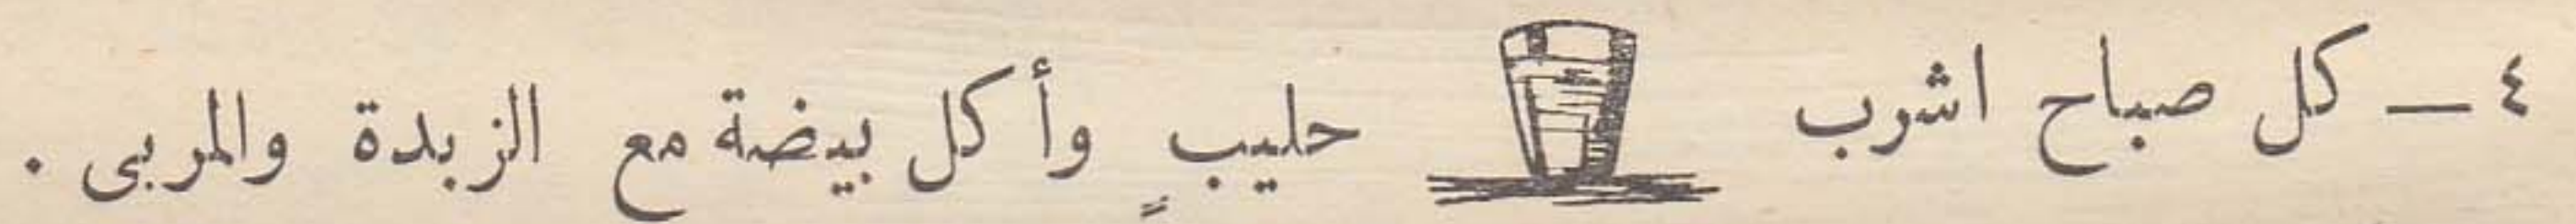 ٤ – كل صباح اشرب حليبٍ وأكل بيضة مع الزبدة والمربى .